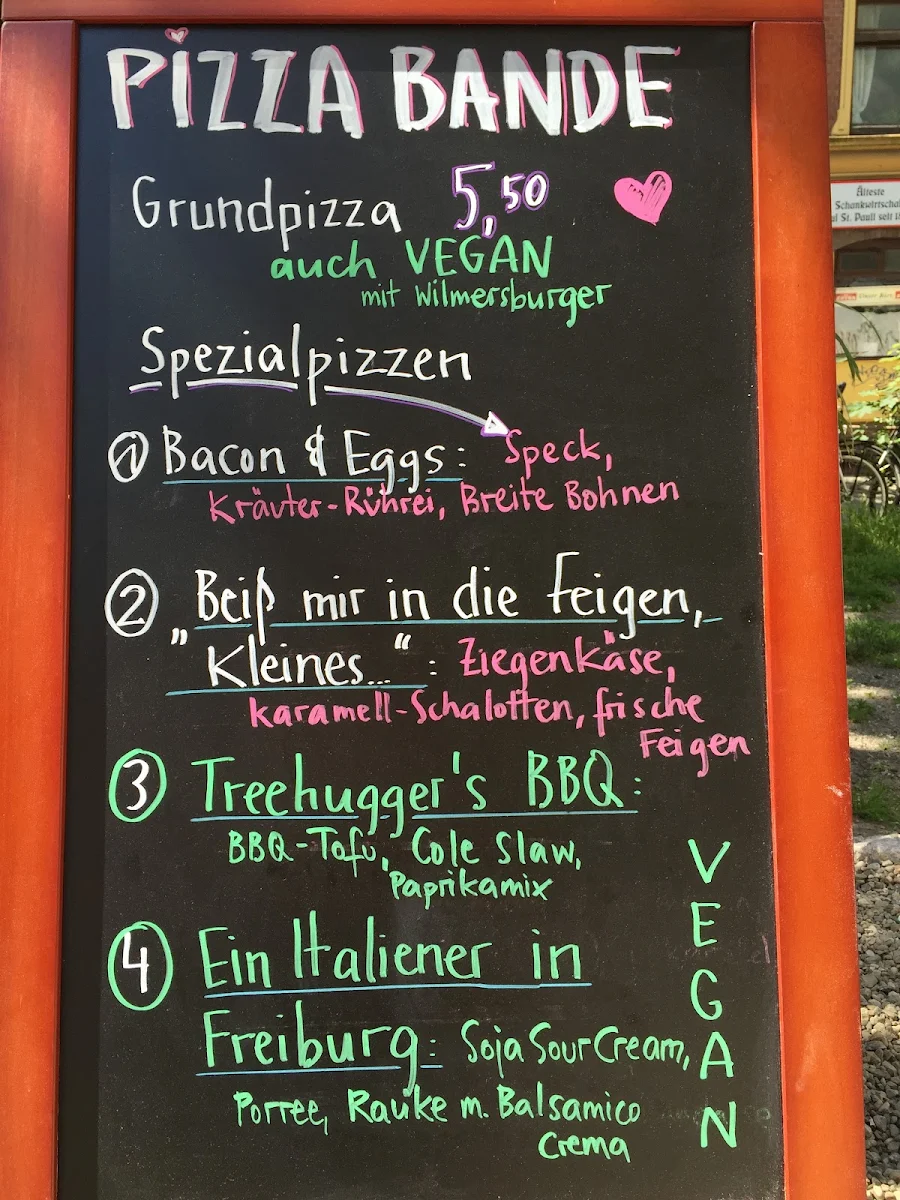 PIZZA BANDE
Grundpizza 5,50
auch VEGAN
mit Wilmersburger
Spezialpizzen
① Bacon & Eggs: Speck,
Kräuter-Rührei, Breite Bohnen
② „Beiß mir in die Feigen,
Kleines..." : Ziegenkäse,
karamell-Schalotten, frische
Feigen
③ Treehugger's BBQ:
BBQ-Tofu, Cole Slaw,
Paprikamix
④ Ein Italiener in
Freiburg: Soja Sour Cream,
Porree, Rauke m. Balsamico
Crema
VEGAN
Älteste
Schankwirtscha
St. Pauli seit